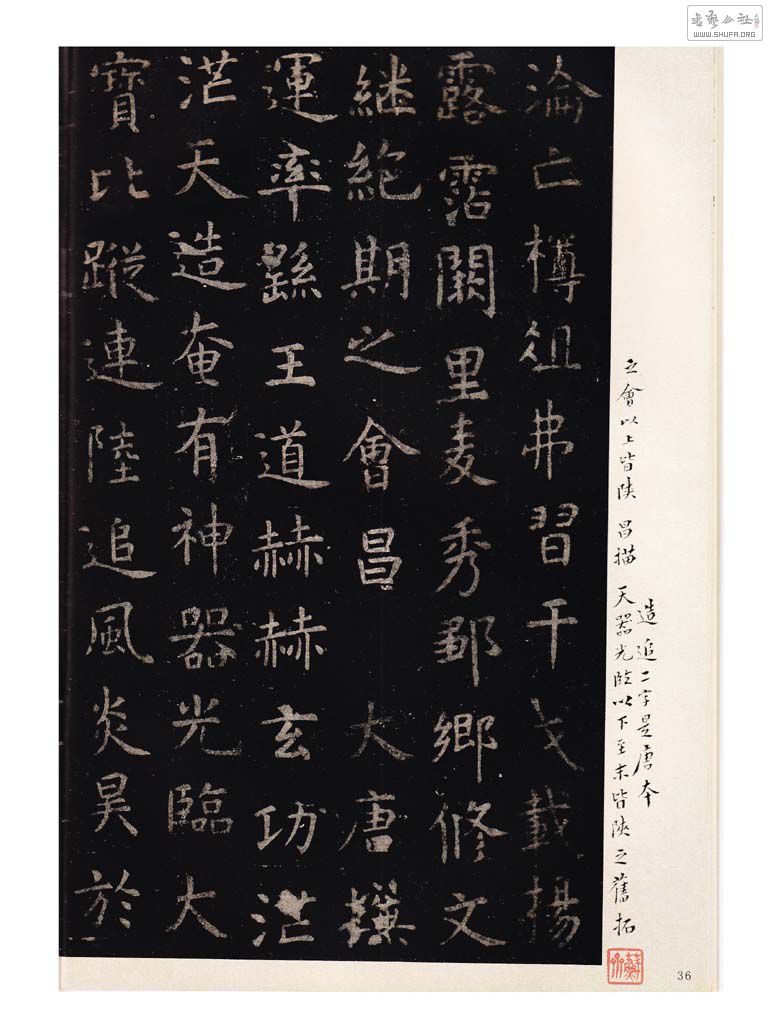 書藝公社
WWW.SHUFA.ORG
之會以上皆陝 昌描 天器光臨以下至末皆陝之舊拓
造追二字是唐本
淪亡樽俎弗習干戈載揚
露霑闕里麦秀鄒鄉修文
継絶期之會昌 大唐撰
運率繇王道赫赫玄功茫
茫天造奄有神器光臨大
寶比蹤連陸追風炎昊於
36